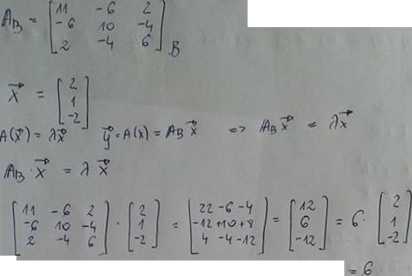 A_B = [11 -6 2
-6 10 -4
2 -4 6]_B
x⃗ = [2
1
-2]
A(x⃗) = λx⃗    y⃗ = A(x⃗) = A_B x⃗  =>  A_B x⃗ = λx⃗
A_B · x⃗ = λ x⃗
[11 -6 2
-6 10 -4
2 -4 6] · [2
1
-2] = [22 -6 -4
-12 +10 +8
4 -4 -12] = [12
6
-12] = 6 · [2
1
-2]
= 6